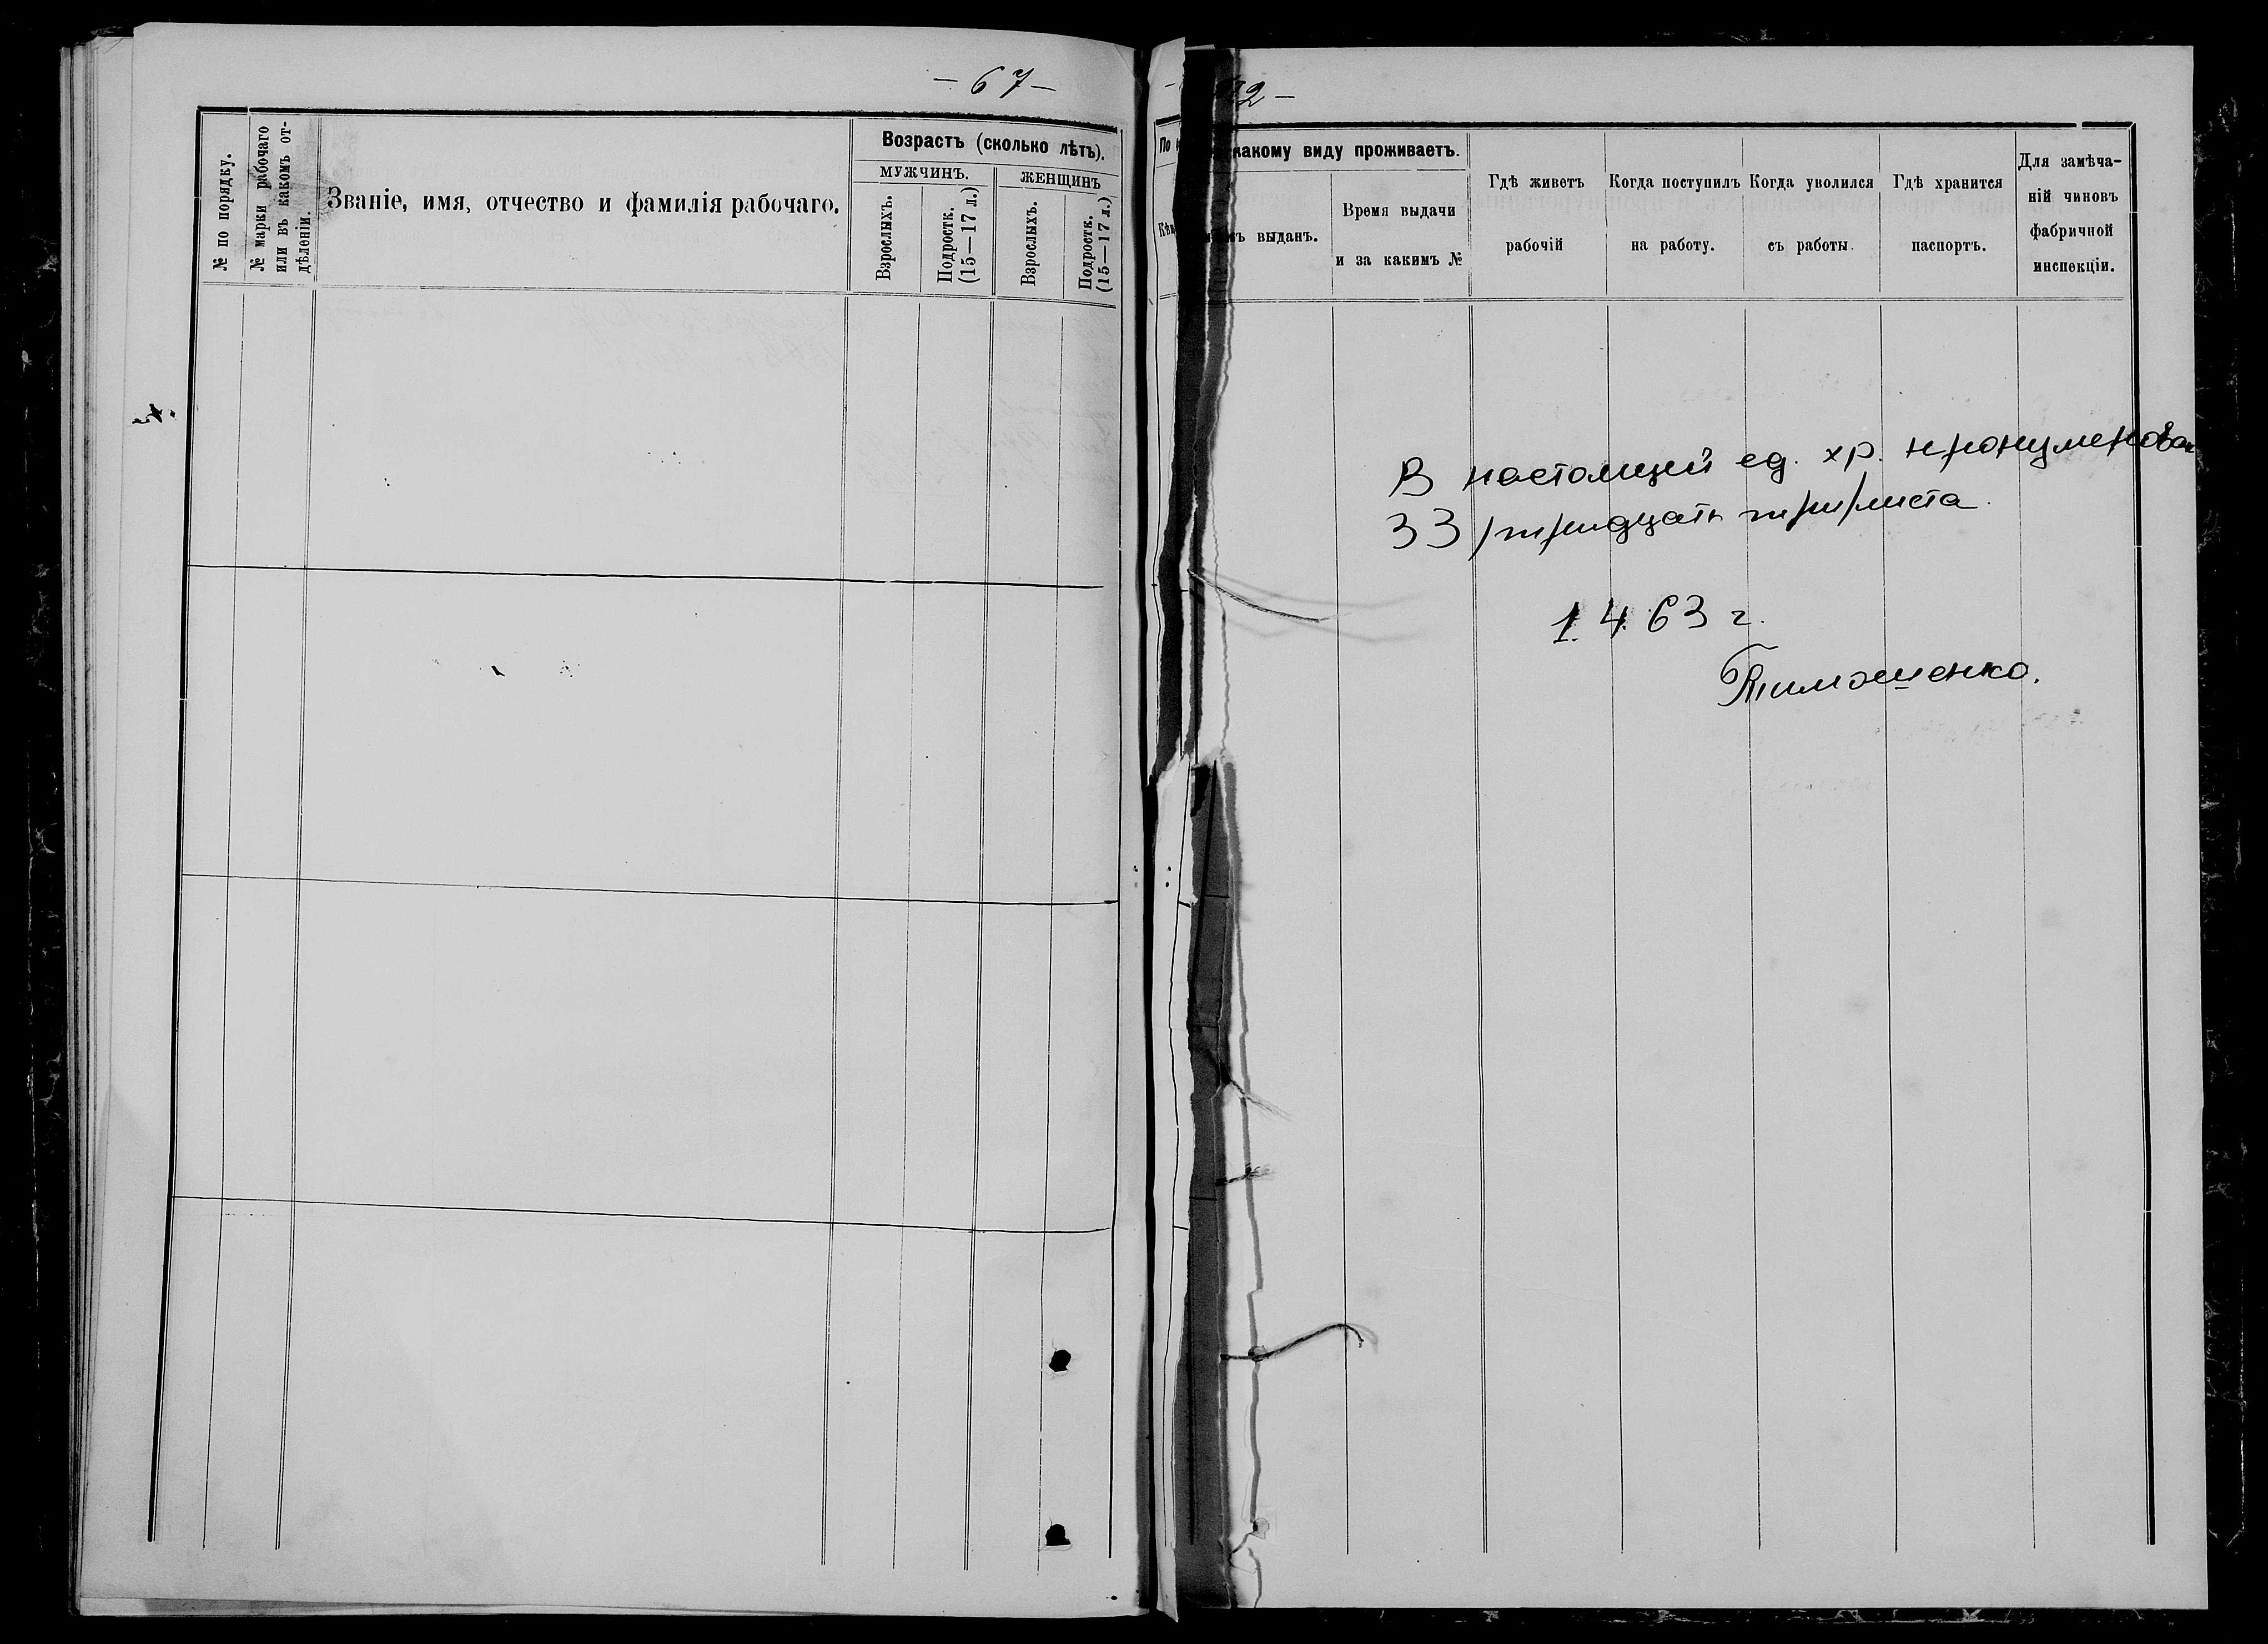 — 67 —
№ по порядку.
№ марки рабочаго
или въ какомъ от-
дѣленіи.
Званіе, имя, отчество и фамилія рабочаго.
Возрастъ (сколько лѣтъ).
МУЖЧИНЪ.
ЖЕНЩИНЪ
Взрослыхъ.
Подростк.
(15—17 л.)
Взрослыхъ.
Подростк.
(15—17 л.)
По
2 —
какому виду проживаетъ.
ъ выданъ.
Время выдачи
и за какимъ №
Гдѣ живетъ
рабочій
Когда поступилъ
на работу.
Когда уволился
съ работы.
Гдѣ хранится
паспортъ.
Для замѣча-
ній чиновъ
фабричной
инспекціи.
В настоящей ед. хр. пронумерован
33 /тридцать три/ листа
1.4.63 г.
Тимошенко.